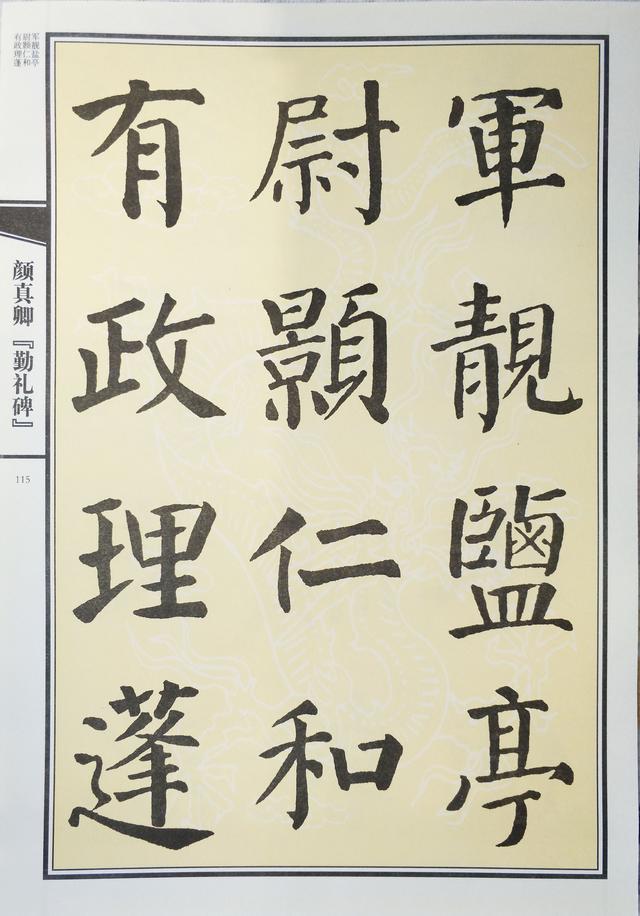 軍靚鹽亭
尉顥仁和
有政理蓬
军靓盐亭
尉颢仁和
有政理蓬
颜真卿『勤礼碑』
115